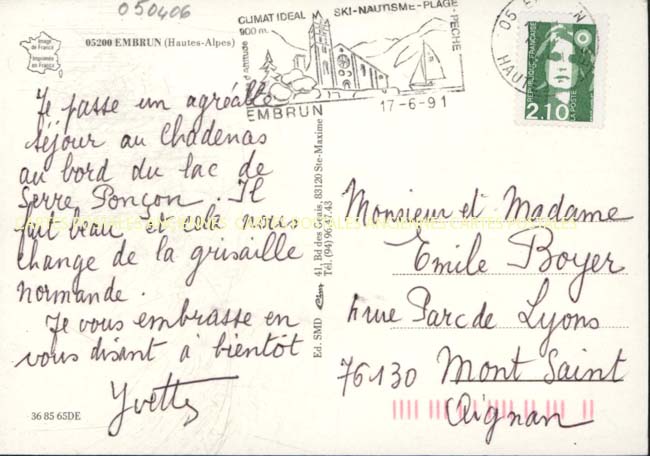 050406
Image
de France
Imprimée
en France
05200 EMBRUN (Hautes-Alpes)
CLIMAT IDEAL
900 m.
d'altitude
SKI-NAUTISME-PLAGE-PECHE
EMBRUN
17-6-91
05 E
HAU
REPUBLIQUE FRANÇAISE
2,10
LA POSTE
Je passe un agréable
séjour au Chadenas
au bord du lac de
Serre Ponçon. Il
fait beau et cela nous
change de la grisaille
normande.
Je vous embrasse en
vous disant à bientôt
Yvette
36 85 65DE
Ed. SMD
41, Bd des Geais, 83120 Ste-Maxime
Tél. (94) 96.47.43
Monsieur et Madame
Emile Boyer
4 rue Parc de Lyons
76130 Mont Saint
Aignan
CARTES POSTALES ANCIENNES CARTES POSTALES ANCIENNES CARTES POSTALES